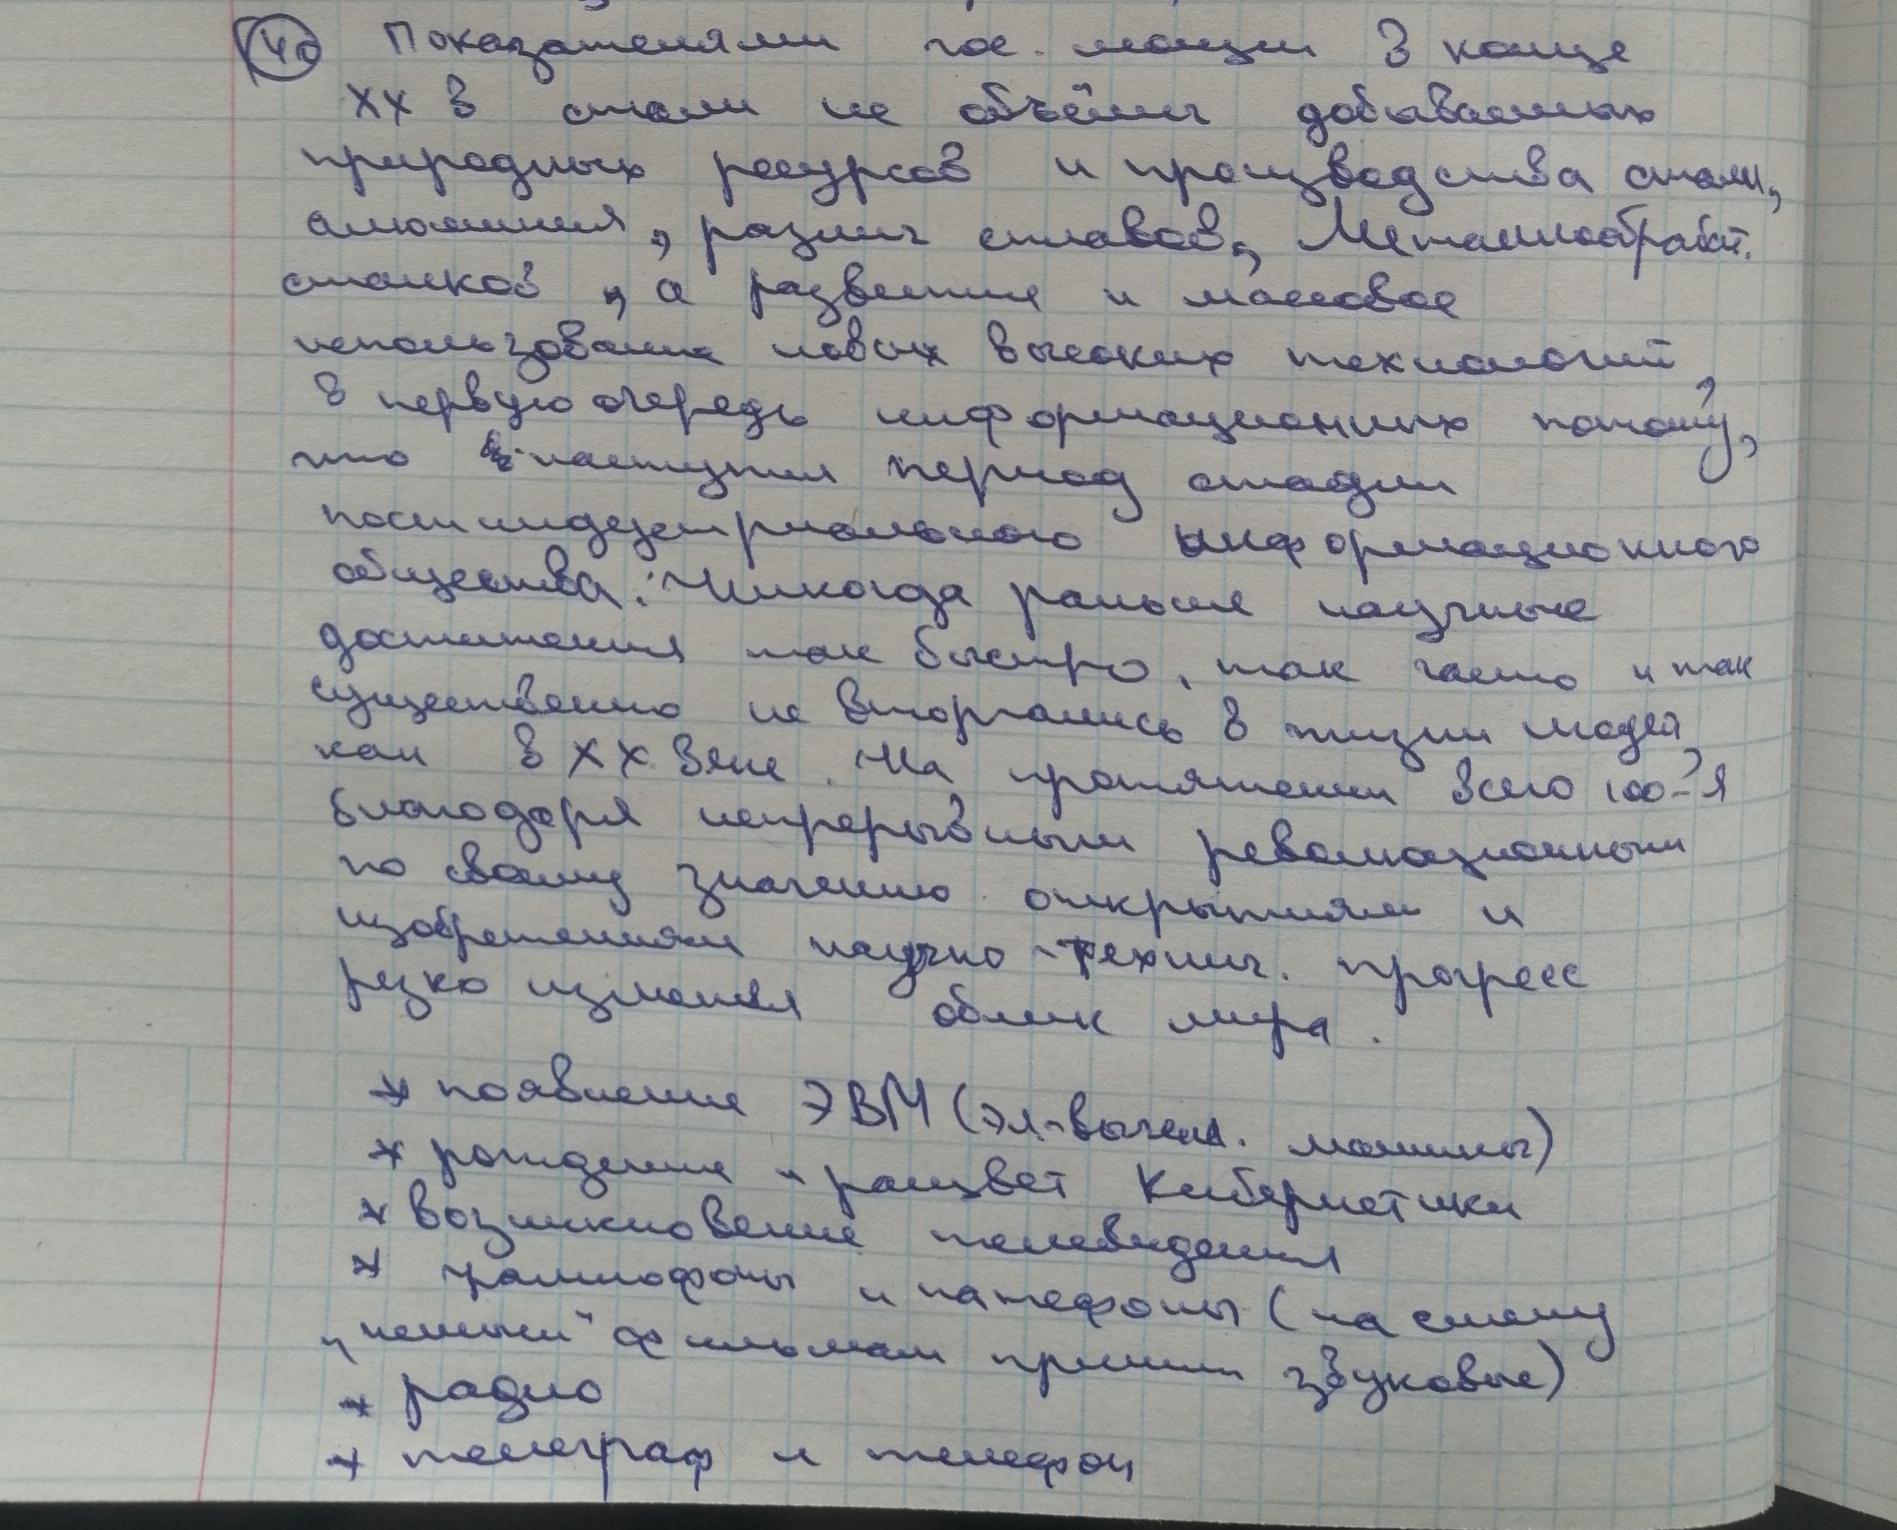 40 Показателями гос. мощи в конце
XX в стали не объёмы добываемых
природных ресурсов и производства стали,
алюминия, различ сплавов, Металлообработ.
станков, а развитие и массовое
использование новых высоких технологий,
в первую очередь информационных потому,
что наступил период стадии
постиндустриального информационного
общества. Никогда раньше научные
достижения так быстро, так часто и так
существенно не вторгались в жизни людей,
как в XX веке. На протяжении всего 100-я
благодаря непрерывным революционным
по своему значению открытиям и
изобретениям научно-технич. прогресс
резко изменял облик мира.
* появление ЭВМ (эл-вычисл. машины)
* рождение - расцвет Кибернетики
* возникновение телевидения
* граммофоны и патефоны (на смену
"немым" фильмам пришли звуковые)
* радио
* телеграф и телефон